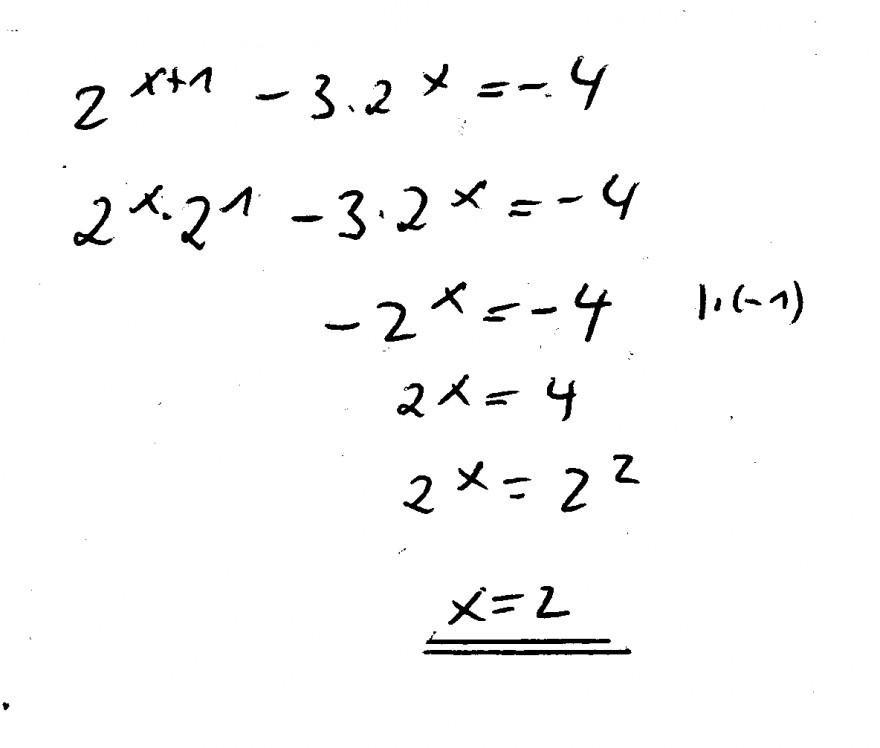 2^{x+1} - 3·2^x = -4
2^x·2^1 - 3·2^x = -4
-2^x = -4 |·(-1)
2^x = 4
2^x = 2^2
x = 2